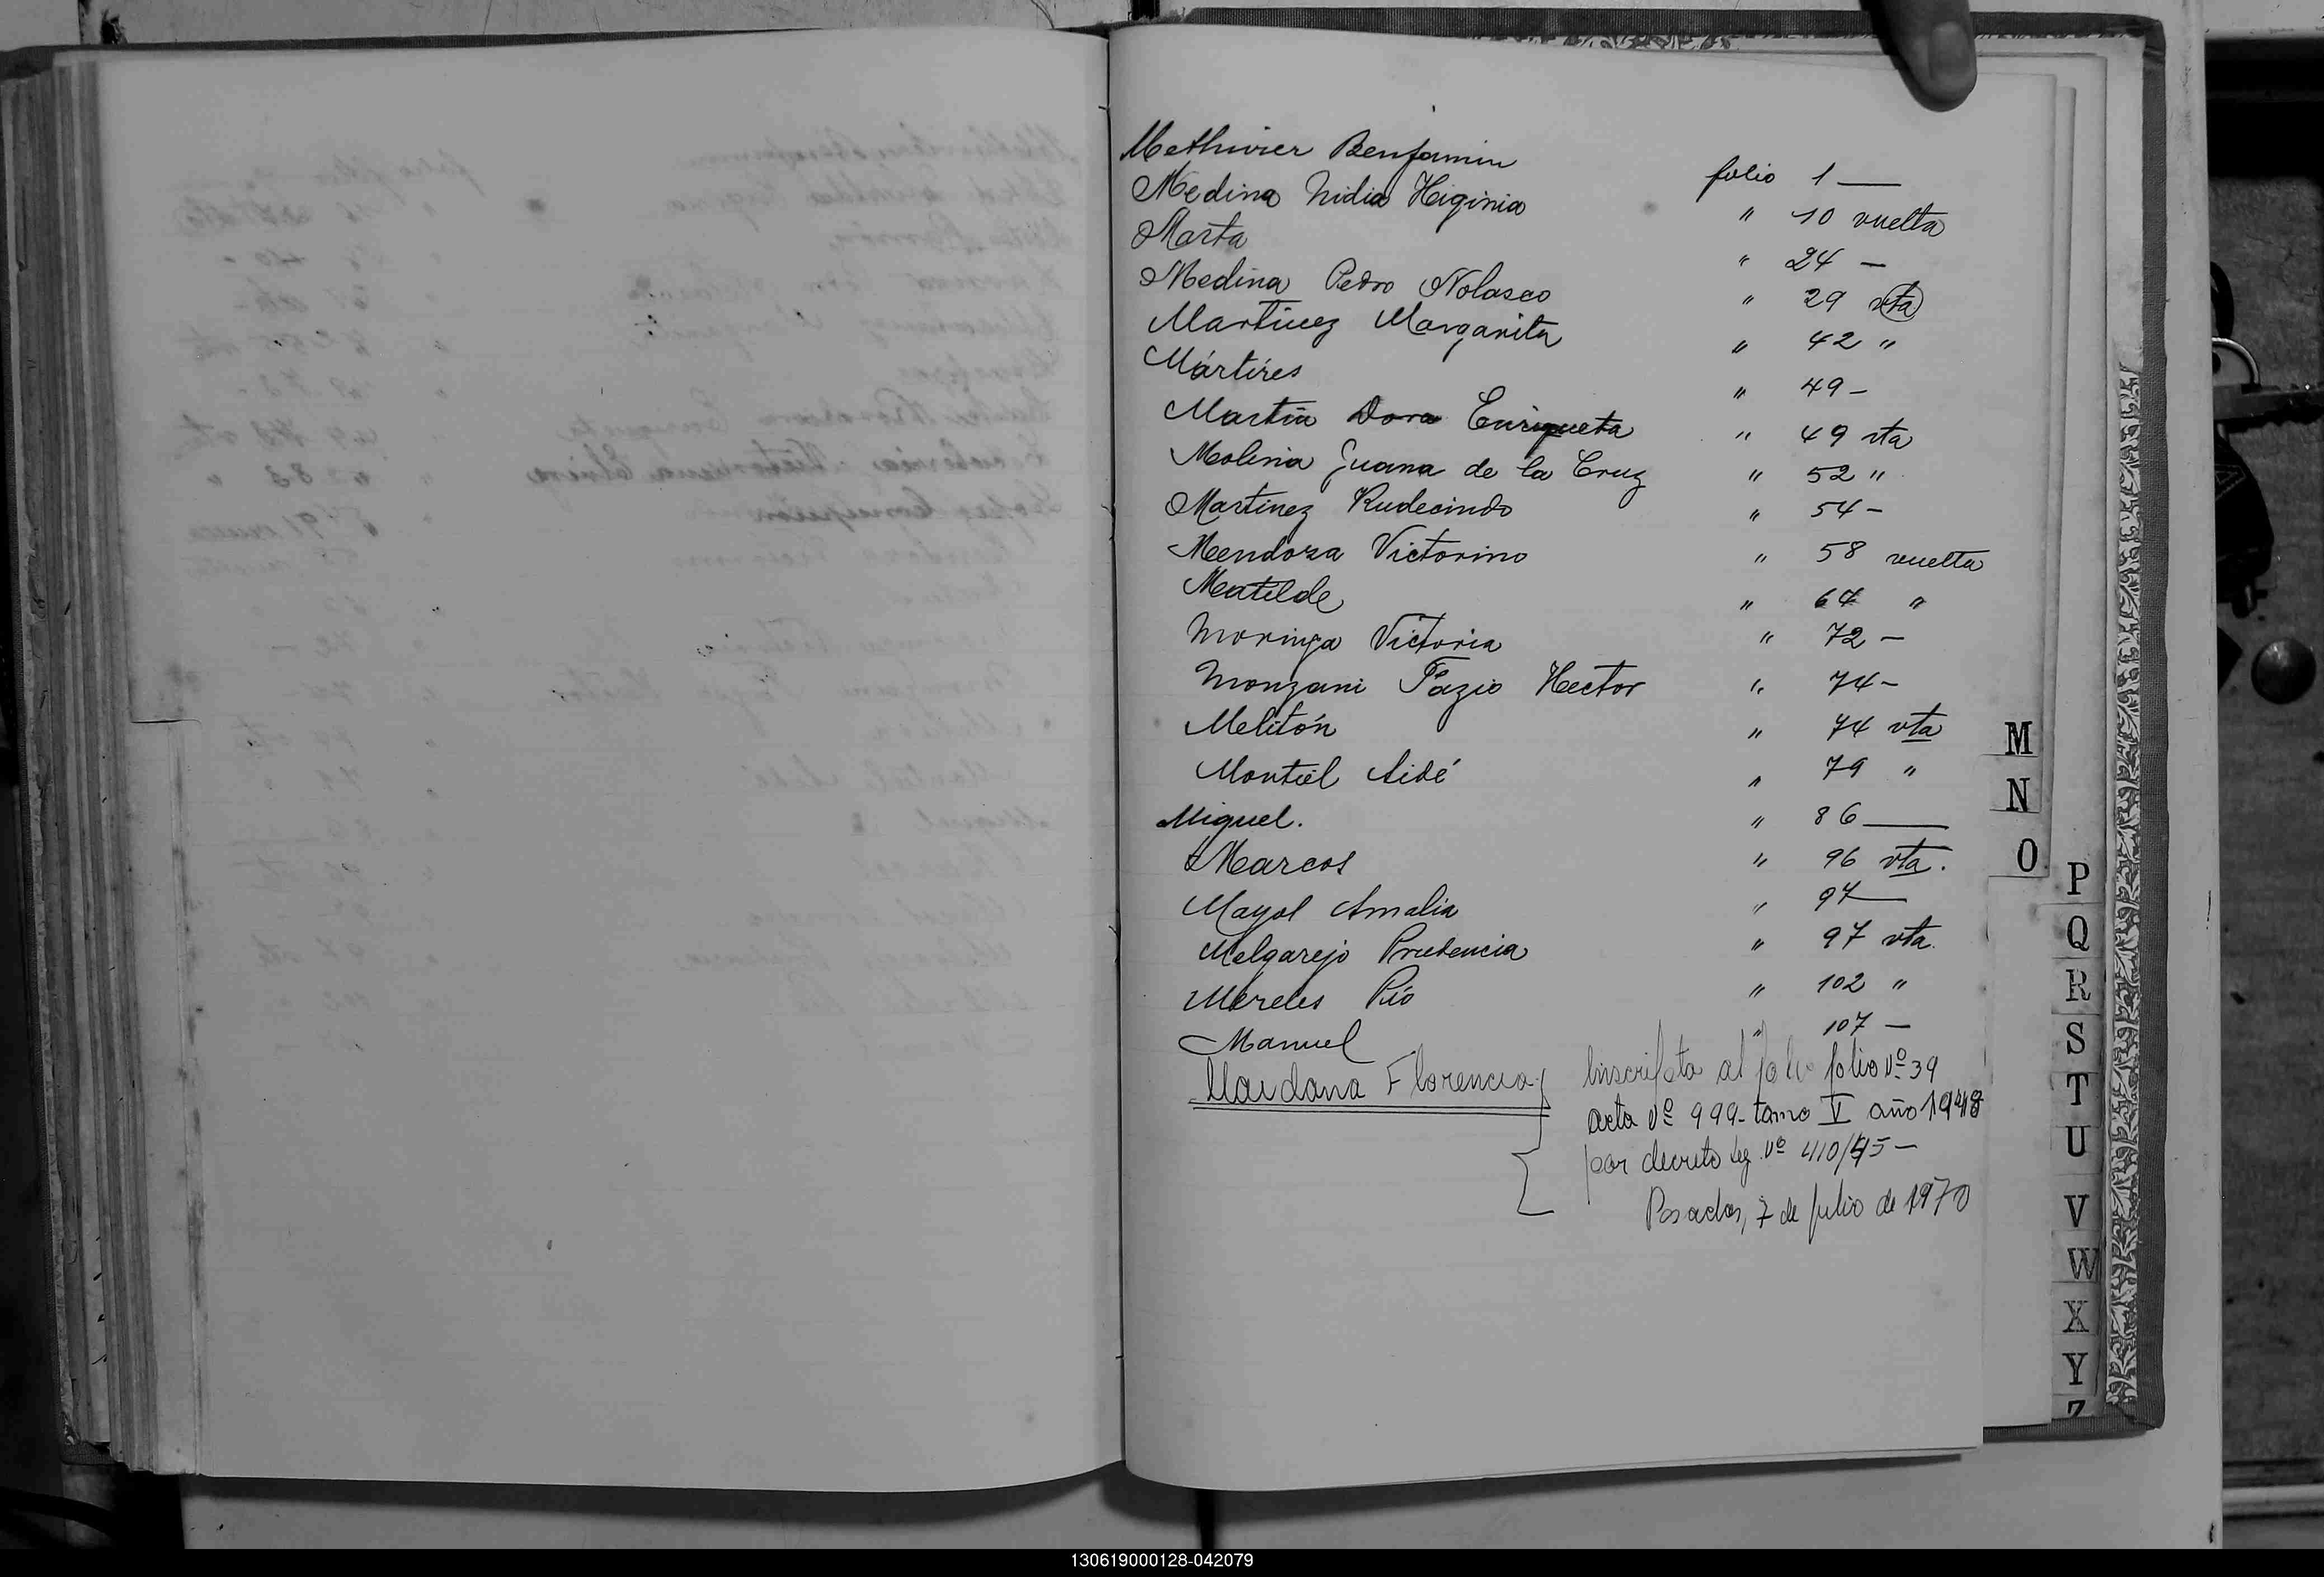 Methivier Benjamin folio 1 —
Medina Nidia Higinia " 10 vuelta
Marta " 24 —
Medina Pedro Nolasco " 29 vta
Martinez Margarita " 42 "
Mártires " 49 –
Martin Dora Enriqueta " 49 vta
Molina Juana de la Cruz " 52 "
Martinez Rudecindo " 54 –
Mendoza Victorino " 58 vuelta
Matilde " 64 "
Moringa Victoria " 72 –
Monzani Fazio Hector " 74 –
Melitón " 74 vta
Montiel Aidé " 79 "
Miguel. " 86 —
Marcos " 96 vta.
Mayol Amalia " 97 —
Melgarejo Prudencia " 97 vta.
Mereles Pío " 102 "
Manuel " 107 —
Maidana Florencia
Inscripta al folio Nº 39
acta Nº 999 - tomo V año 1948
por decreto Leg. Nº 410/45 —
Posadas, 7 de julio de 1970
M
N
O
P
Q
R
S
T
U
V
W
X
Y
Z
130619000128-042079